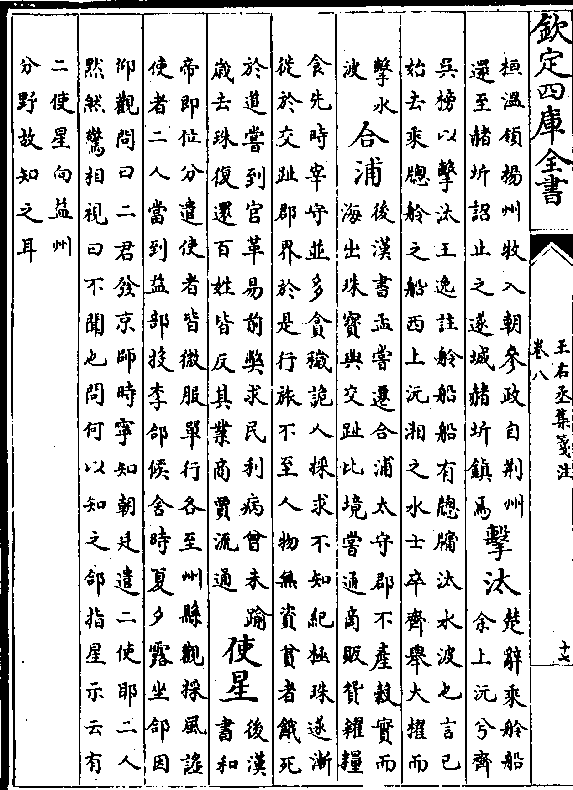 欽定四庫全書
王右丞集箋注
卷八
十七
桓溫領揚州牧入朝參政自荆州
還至赭圻詔止之遂城赭圻鎮焉
擊汰
楚辭乘舲船
余上沅兮齊
吳榜以擊汰王逸註舲船船有牕牖汰水波也言已
始去乘牕舲之船西上沅湘之水士卒齊舉大櫂而
擊水
波
合浦
後漢書孟嘗遷合浦太守郡不產穀實而
海出珠寶與交趾比境嘗通商販貨糴糧
食先時宰守並多貪穢詭人採求不知紀極珠遂漸
徙於交趾郡界於是行旅不至人物無資貧者餓死
於道嘗到官革易前獘求民利病曾未踰
歲去珠復還百姓皆反其業商賈流通
使星
後漢
書和
帝即位分遣使者皆微服單行各至州縣觀採風謡
使者二人當到益部投李郃候舍時夏夕露坐郃因
仰觀問曰二君發京師時寧知朝廷遣二使耶二人
黙然驚相視曰不聞也問何以知之郃指星示云有
二使星向益州
分野故知之耳